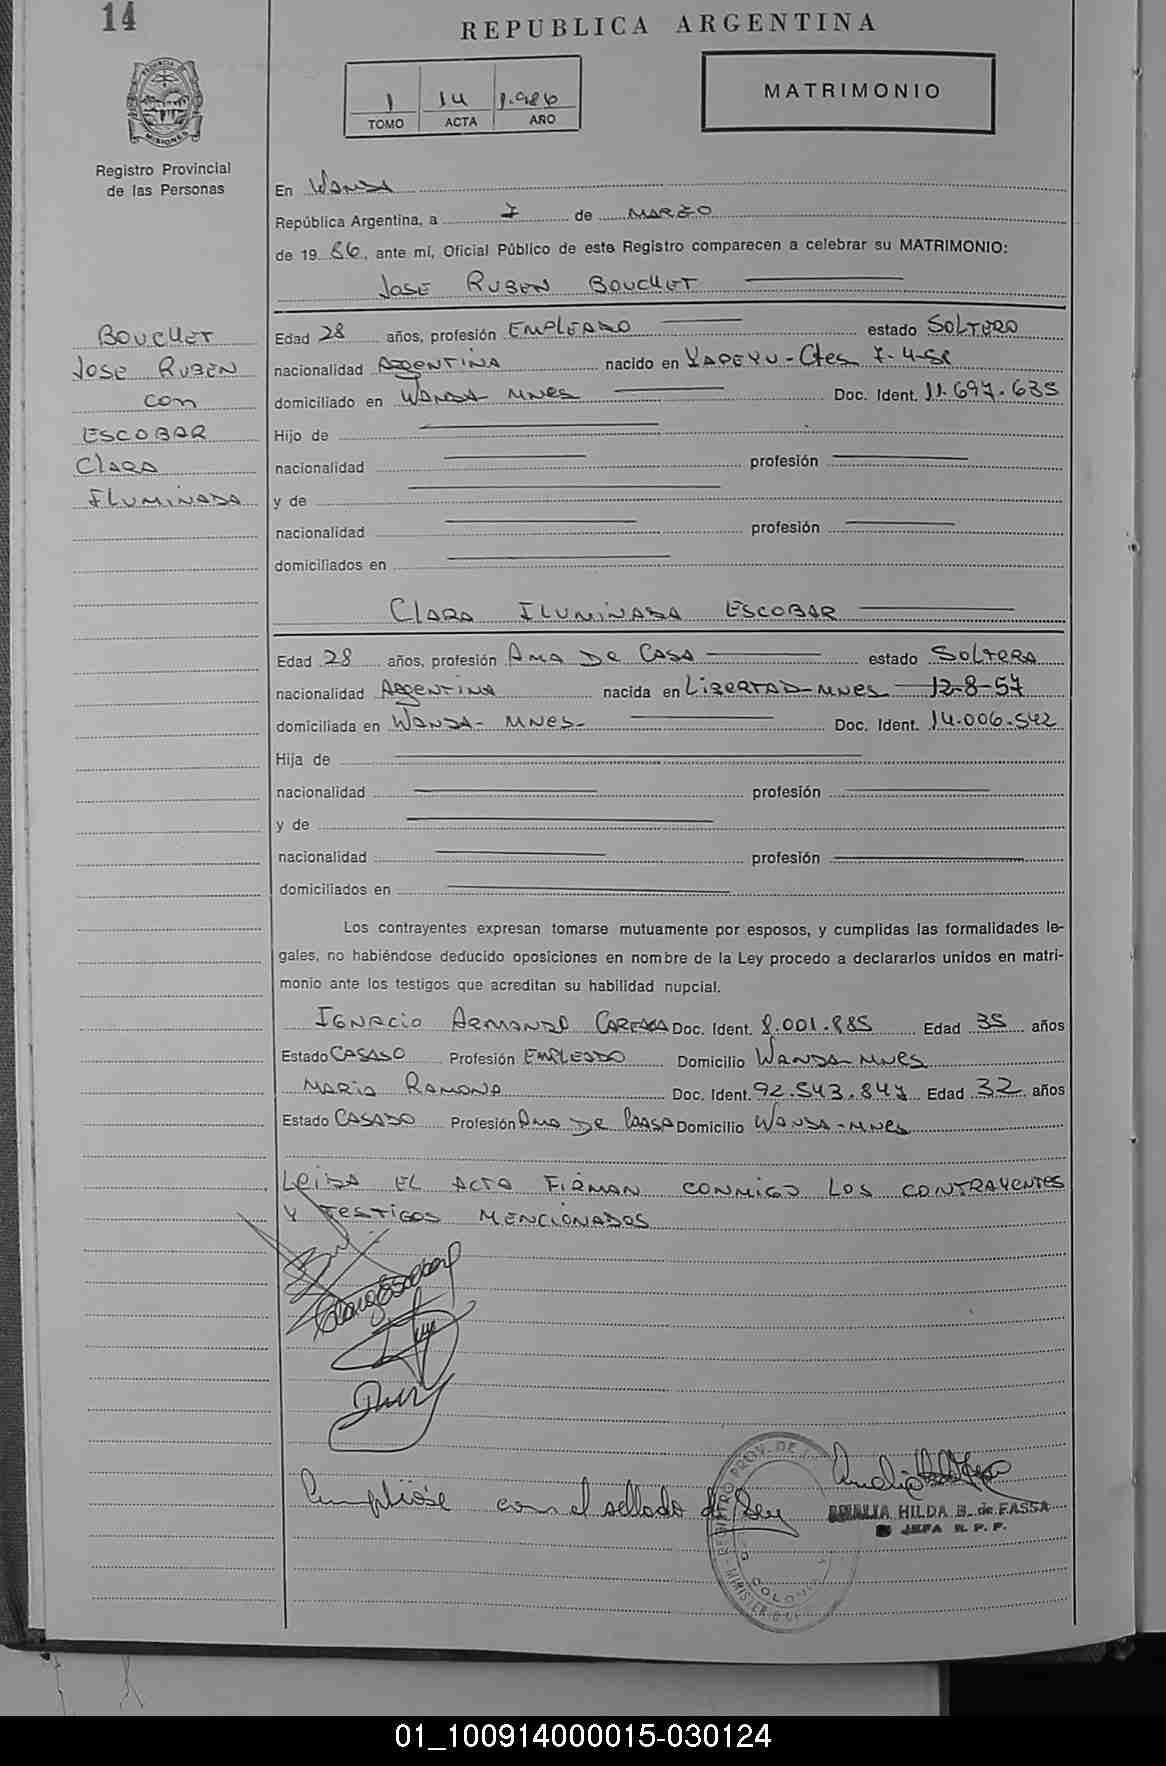 14
REPUBLICA ARGENTINA
1 14 1.986
TOMO ACTA AÑO
MATRIMONIO
Registro Provincial
de las Personas
En WANDA
República Argentina, a 7 de MARZO
de 1986, ante mí, Oficial Público de este Registro comparecen a celebrar su MATRIMONIO:
JOSE RUBEN BOUCHET
BOUCHET
JOSE RUBEN
con
ESCOBAR
CLARA
ILUMINADA
Edad 28 años, profesión EMPLEADO estado SOLTERO
nacionalidad ARGENTINA nacido en YAPEYU-Ctes 7-4-58
domiciliado en WANDA MNES Doc. Ident. 11.697.635
Hijo de
nacionalidad profesión
y de
nacionalidad profesión
domiciliados en
CLARA ILUMINADA ESCOBAR
Edad 28 años, profesión AMA DE CASA estado SOLTERA
nacionalidad ARGENTINA nacida en LIBERTAD-MNES 12-8-57
domiciliada en WANDA-MNES- Doc. Ident. 14.006.542
Hija de
nacionalidad profesión
y de
nacionalidad profesión
domiciliados en
Los contrayentes expresan tomarse mutuamente por esposos, y cumplidas las formalidades le-
gales, no habiéndose deducido oposiciones en nombre de la Ley procedo a declararlos unidos en matri-
monio ante los testigos que acreditan su habilidad nupcial.
IGNACIO ARMANDO Doc. Ident. 8.001.885 Edad 35 años
Estado CASADO Profesión EMPLEADO Domicilio WANDA-MNES
MARIA RAMONA Doc. Ident. 92.543.847 Edad 32 años
Estado CASADO Profesión AMA DE CAASA Domicilio WANDA-MNES
LEIDA EL ACTA FIRMAN CONMIGO LOS CONTRAYENTES
Y TESTIGOS MENCIONADOS
Cumplióse con el sellado de Ley
AMALIA HILDA B. de FASSA
JEFA R. P. P.
01_100914000015-030124